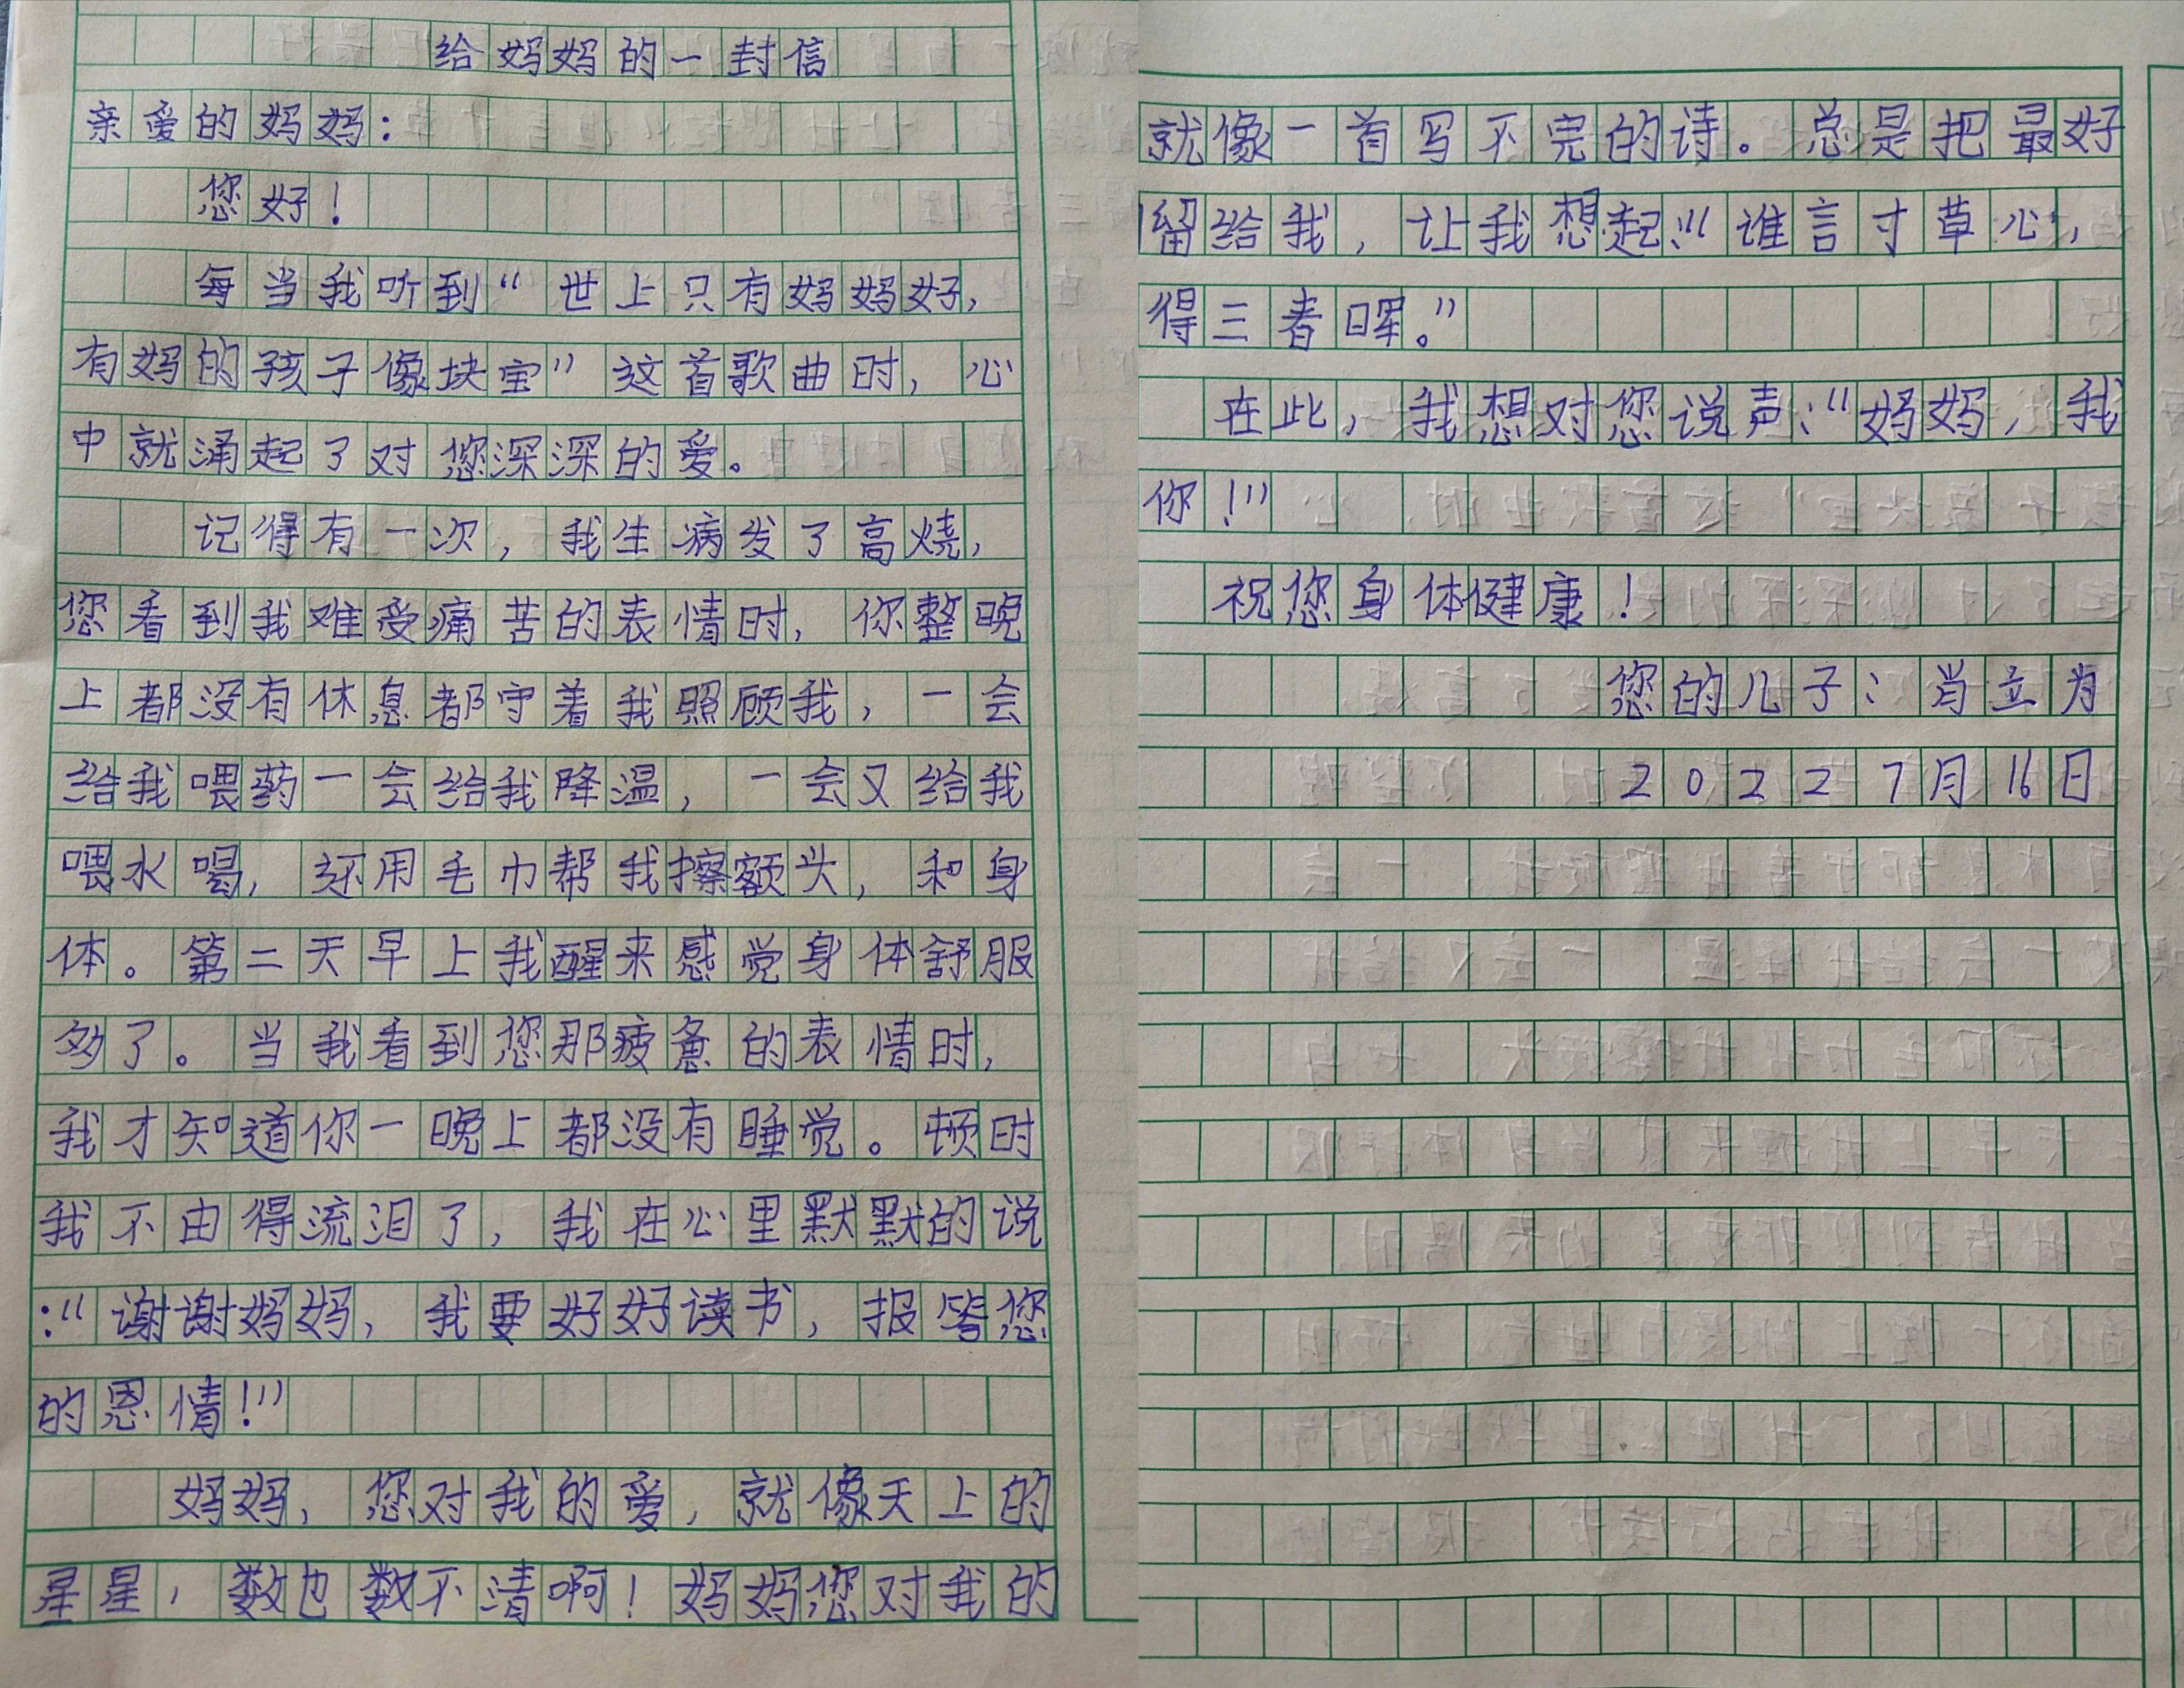 给妈妈的一封信
亲爱的妈妈：
您好！
每当我听到“世上只有妈妈好，
有妈的孩子像块宝”这首歌曲时，心
中就涌起了对您深深的爱。
记得有一次，我生病发了高烧，
您看到我难受痛苦的表情时，你整晚
上都没有休息都守着我照顾我，一会
给我喂药一会给我降温，一会又给我
喂水喝，还用毛巾帮我擦额头，和身
体。第二天早上我醒来感觉身体舒服
多了。当我看到您那疲惫的表情时，
我才知道你一晚上都没有睡觉。顿时
我不由得流泪了，我在心里默默的说
：“谢谢妈妈，我要好好读书，报答您
的恩情！”
妈妈，您对我的爱，就像天上的
星星，数也数不清啊！妈妈您对我的
就像一首写不完的诗。总是把最好
留给我，让我想起：“谁言寸草心，
得三春晖。”
在此，我想对您说声：“妈妈，我
你！”
祝您身体健康！
您的儿子：肖立为
2022 7月16日